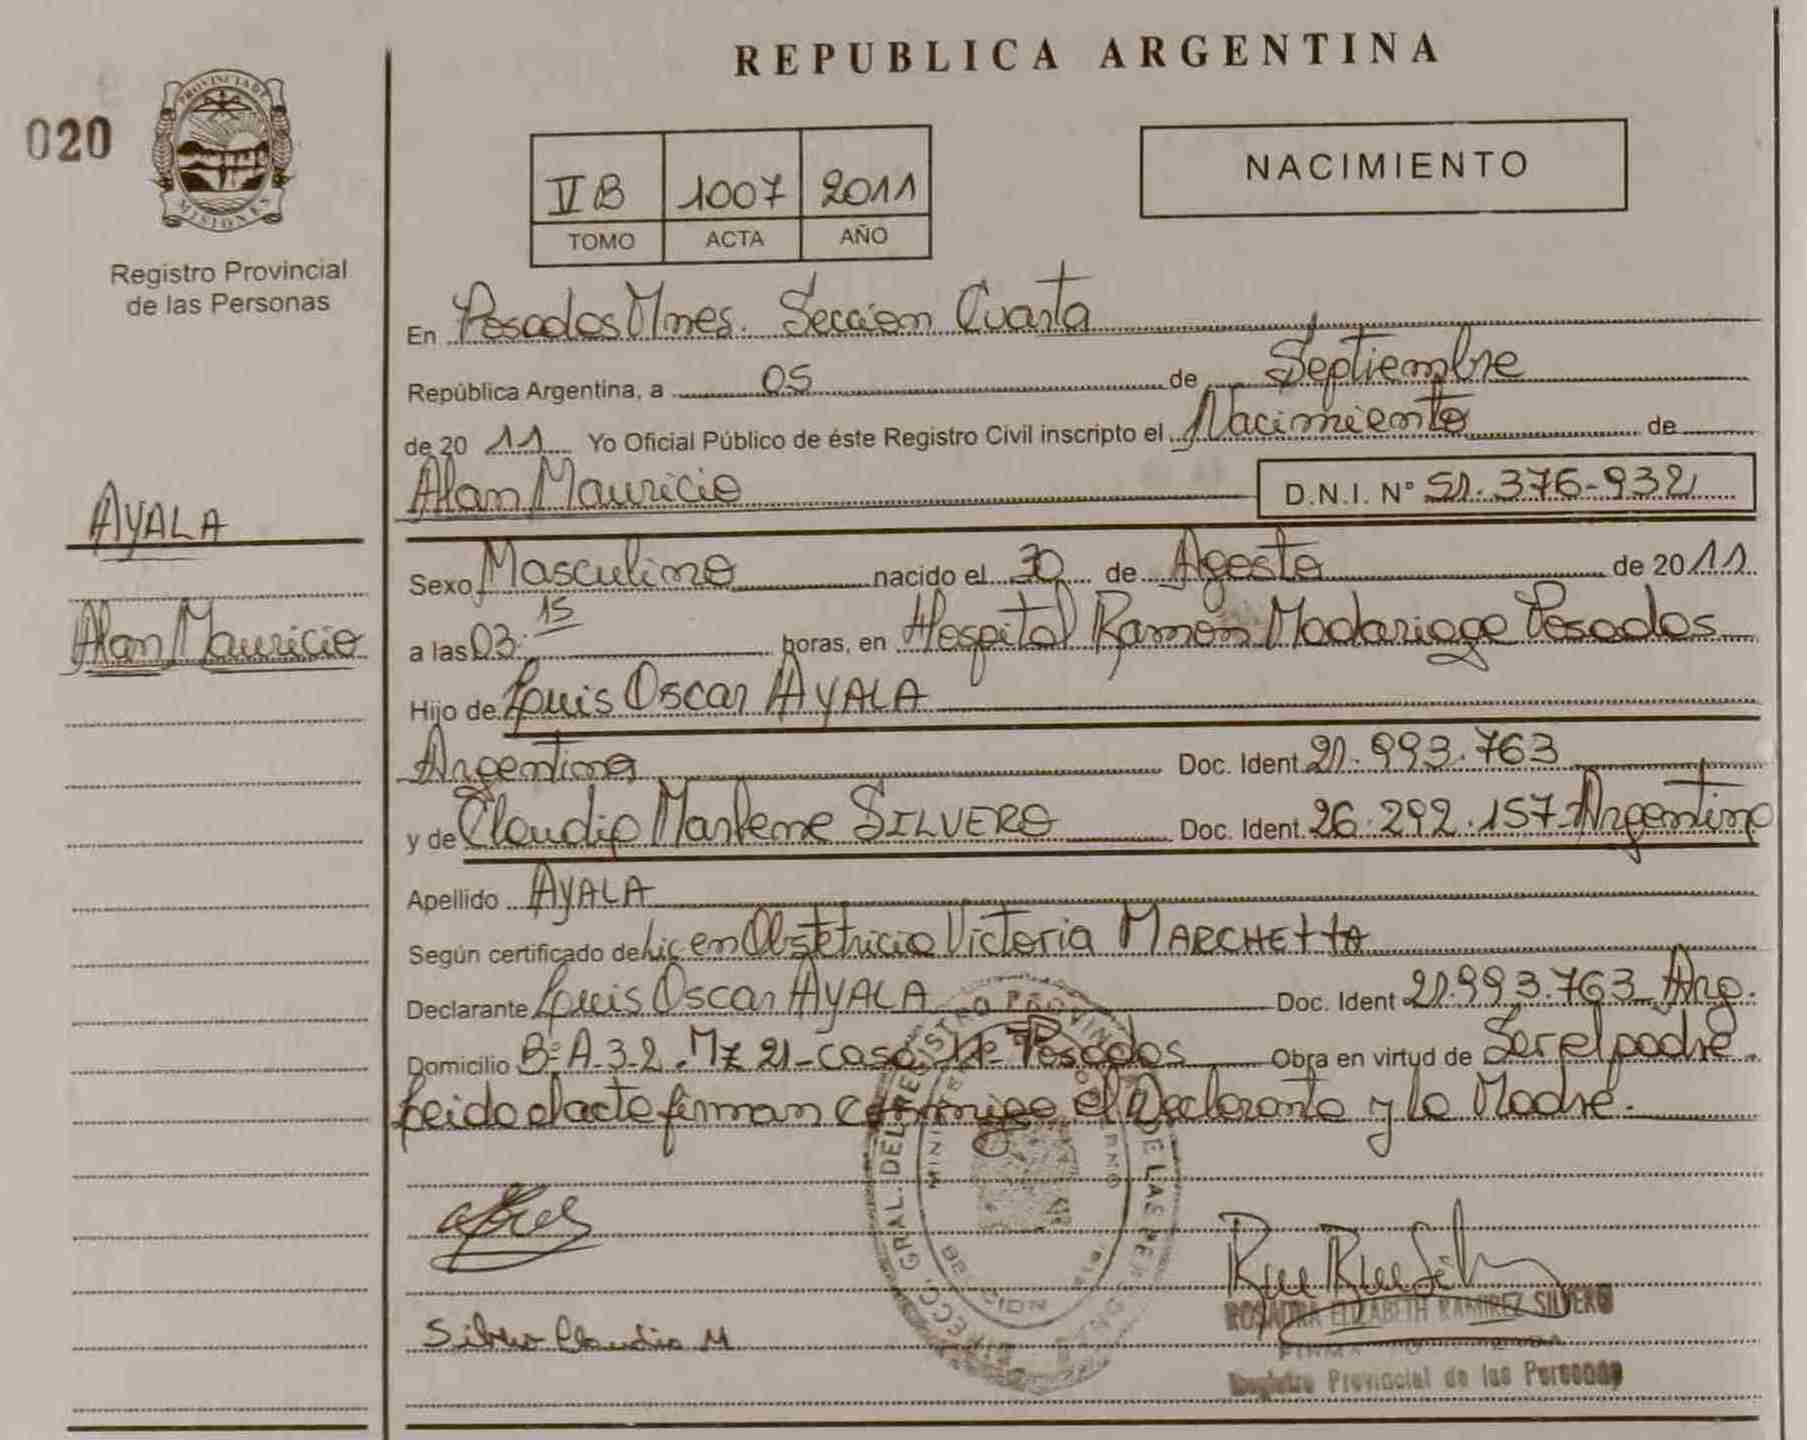 REPUBLICA ARGENTINA
020
PROVINCIA DE MISIONES
Registro Provincial
de las Personas
NACIMIENTO
VB 1007 2011
TOMO ACTA AÑO
En Posadas Mnes. Sección Cuarta
República Argentina, a 05 de Septiembre
de 2011 Yo Oficial Público de éste Registro Civil inscripto el Nacimiento de
Alan Mauricio D.N.I. Nº 51.376-932
AYALA
Alan Mauricio
Sexo Masculino nacido el 30 de Agosto de 2011
a las 03:15 horas, en Hospital Ramón Madariaga Posadas
Hijo de Luis Oscar AYALA
Argentino Doc. Ident. 21.993.763
y de Claudia Marlene SILVERO Doc. Ident. 26.292.157 Argentina
Apellido AYALA
Según certificado de Lic en Obstetricia Victoria MARCHETTA
Declarante Luis Oscar AYALA Doc. Ident 21.993.763 Arg.
Domicilio Bº A-3-2. Mz 21-casa Posadas Obra en virtud de Ser el padre.
Leido el acto firman conmigo el Declarante y la Madre.
Silvero Claudia M
ROSAURA ELIZABETH RAMIREZ SILVERO
Registro Provincial de las Personas